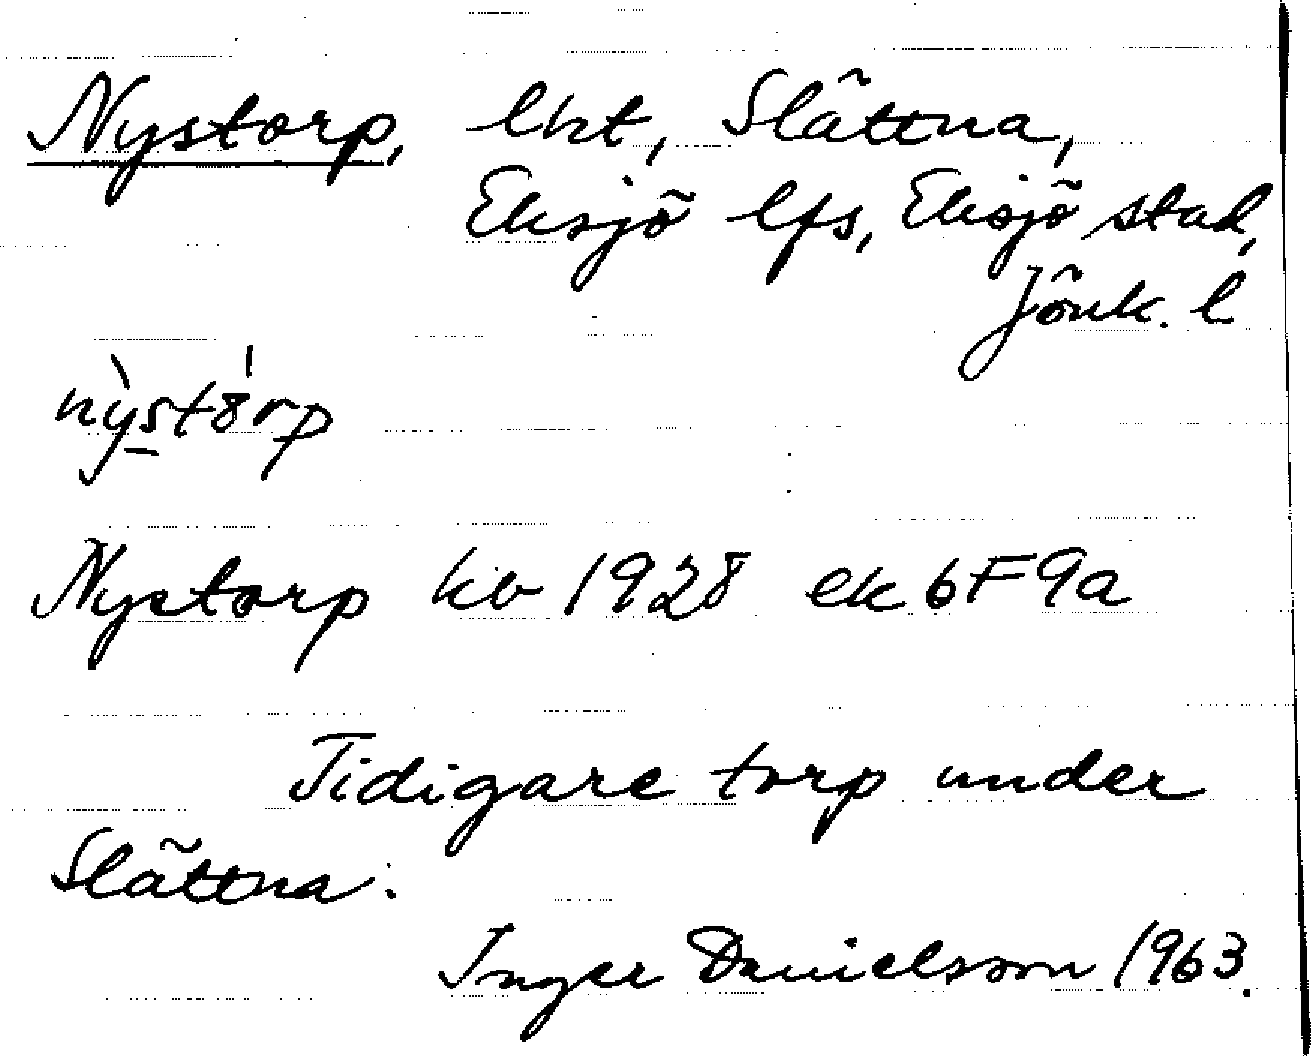 Nystorp, lht, Slättna,
Eksjö lfs, Eksjö stad,
Jönk. l
nỳstórp
Nystorp kb 1928 ek 6F9a
Tidigare torp under
Slättna.
Inger Danielsson 1963.